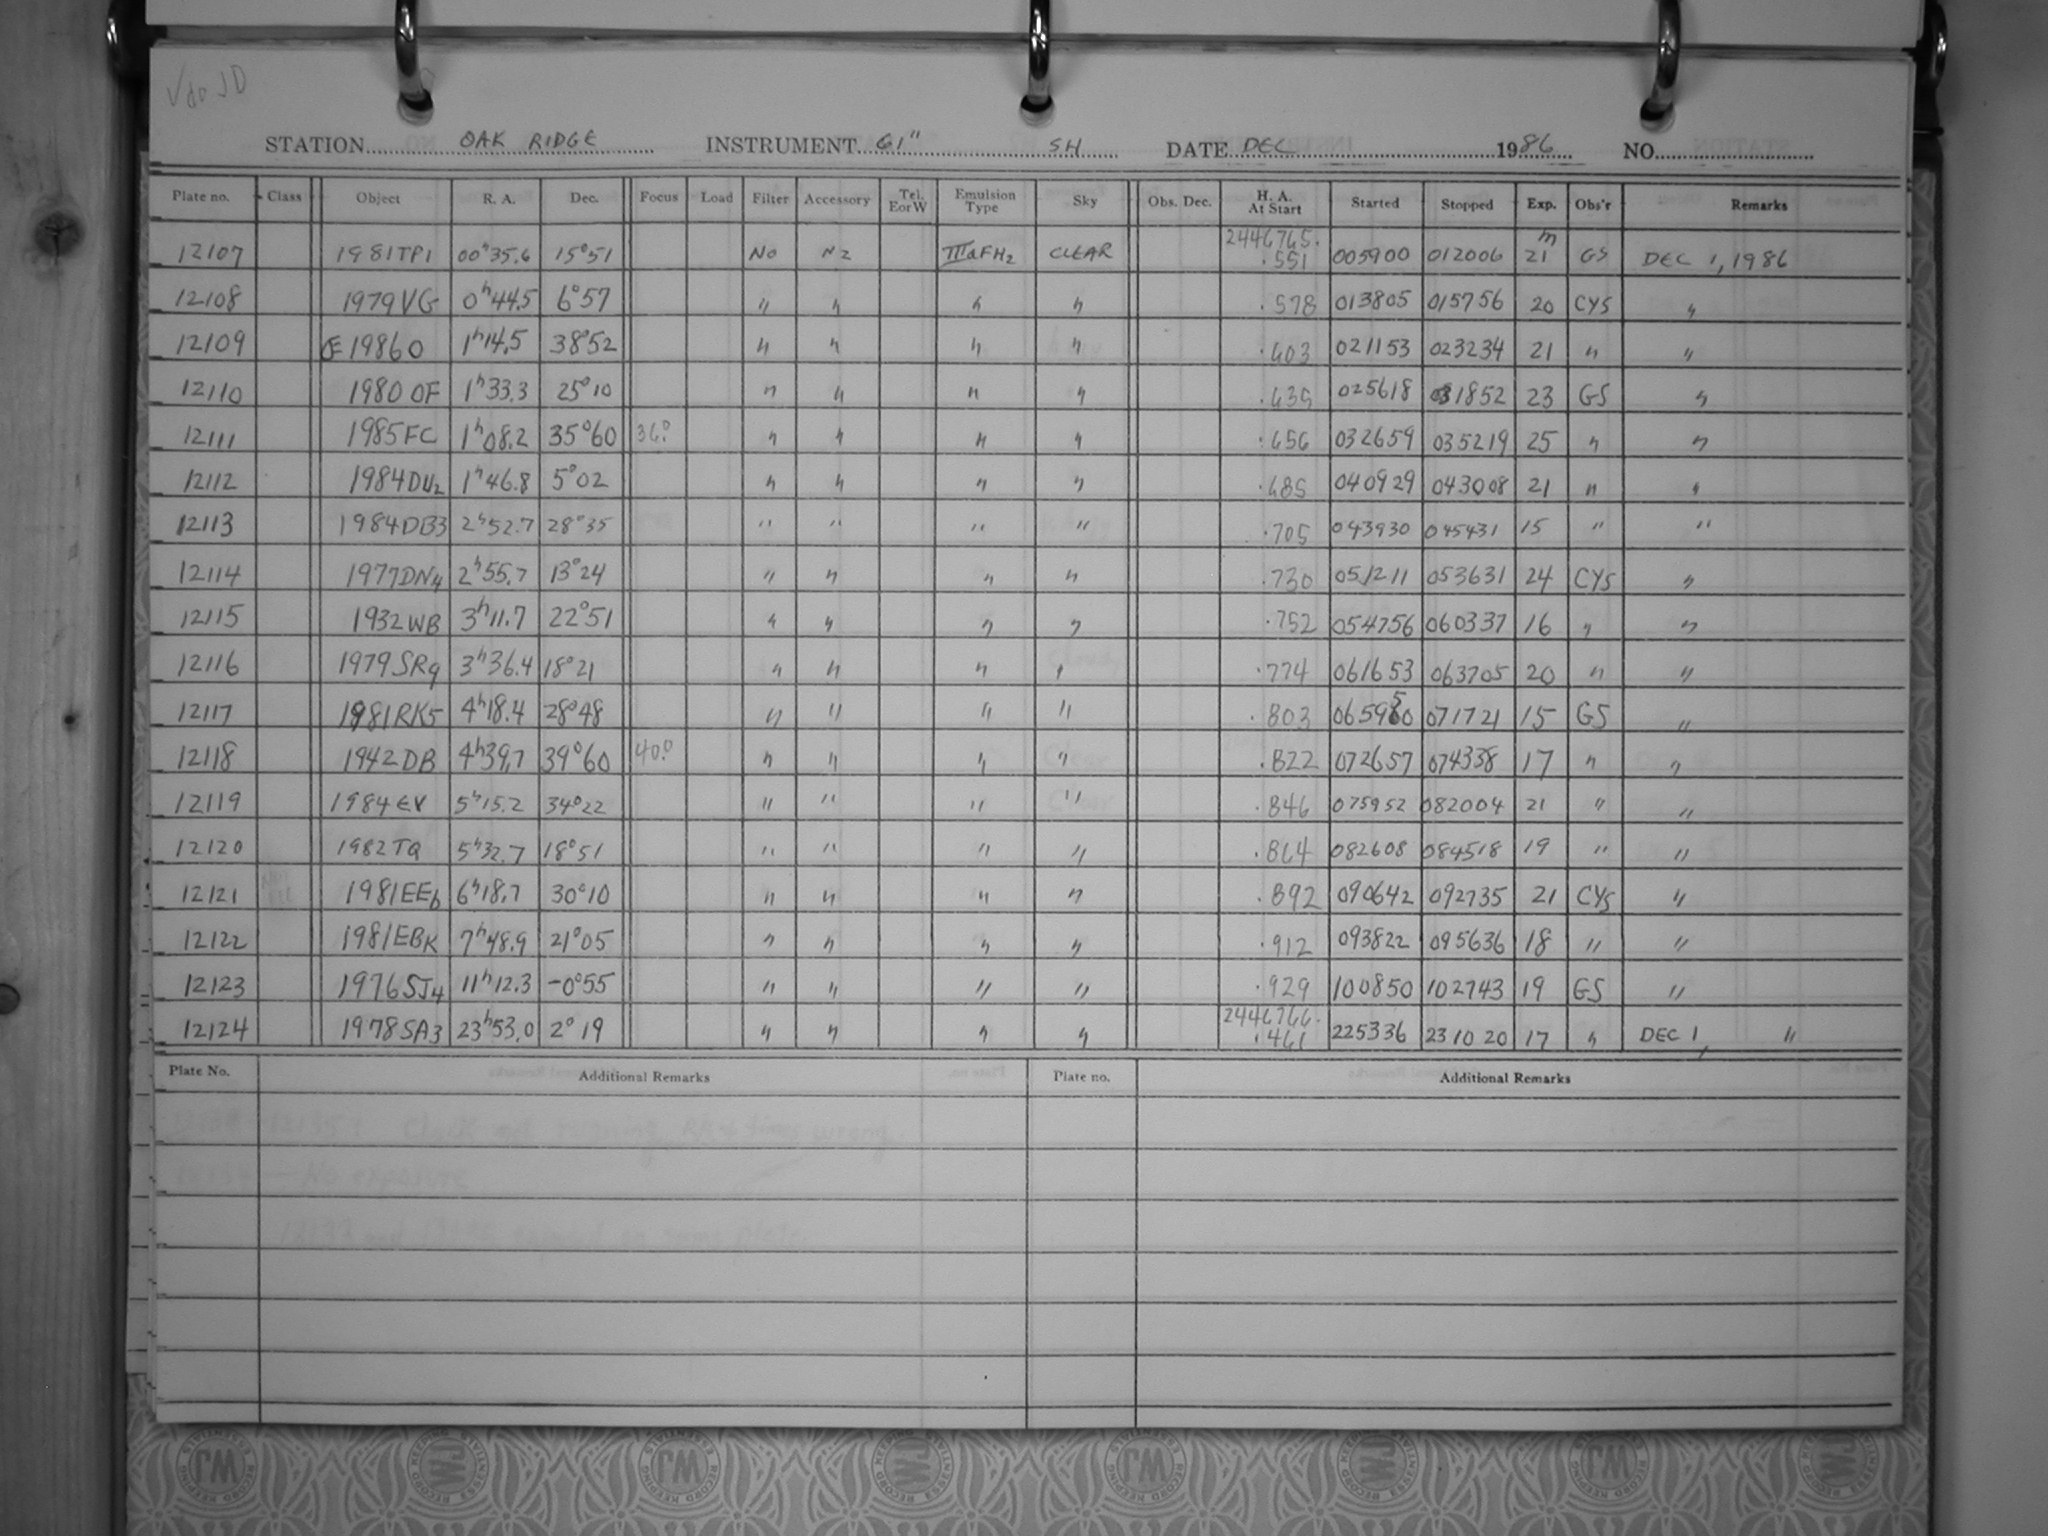 √ do JD
STATION OAK RIDGE INSTRUMENT 61" SH DATE DEC 1986 NO.
Plate no. Class Object R. A. Dec. Focus Load Filter Accessory Tel. E or W Emulsion Type Sky Obs. Dec. H. A. At Start Started Stopped Exp. Obs'r Remarks
12107 1981TP1 00h35.6 15°51 No N2 IIIaFH2 CLEAR 2446765. .551 005900 012006 21m GS DEC 1, 1986
12108 1979VG 0h44.5 6°57 " " " " .578 013805 015756 20 CYS "
12109 1986O 1h14.5 38°52 " " " " .603 021153 023234 21 " "
12110 1980 OF 1h33.3 25°10 " " " " .635 025618 031852 23 GS "
12111 1985FC 1h08.2 35°60 36.0 " " " " .656 032659 035219 25 " "
12112 1984DU2 1h46.8 5°02 " " " " .685 040929 043008 21 " "
12113 1984DB3 2h52.7 28°35 " " " " .705 043930 045431 15 " "
12114 1977DN4 2h55.7 13°24 " " " " .730 051211 053631 24 CYS "
12115 1932WB 3h11.7 22°51 " " " " .752 054756 060337 16 " "
12116 1979SR9 3h36.4 18°21 " " " " .774 061653 063705 20 " "
12117 1981RK5 4h18.4 28°48 " " " " .803 065950 071721 15 GS "
12118 1942DB 4h39.7 39°60 40.0 " " " " .822 072657 074338 17 " "
12119 1984EV 5h15.2 34°22 " " " " .846 075952 082004 21 " "
12120 1982TQ 5h32.7 18°51 " " " " .864 082608 084518 19 " "
12121 1981EE6 6h18.7 30°10 " " " " .892 090642 092735 21 CYS "
12122 1981EBK 7h48.9 21°05 " " " " .912 093822 095636 18 " "
12123 1976SJ4 11h12.3 -0°55 " " " " .929 100850 102743 19 GS "
12124 1978SA3 23h53.0 2°19 " " " " 2446766. .461 225336 231020 17 " DEC 1, "
Plate No. Additional Remarks Plate no. Additional Remarks